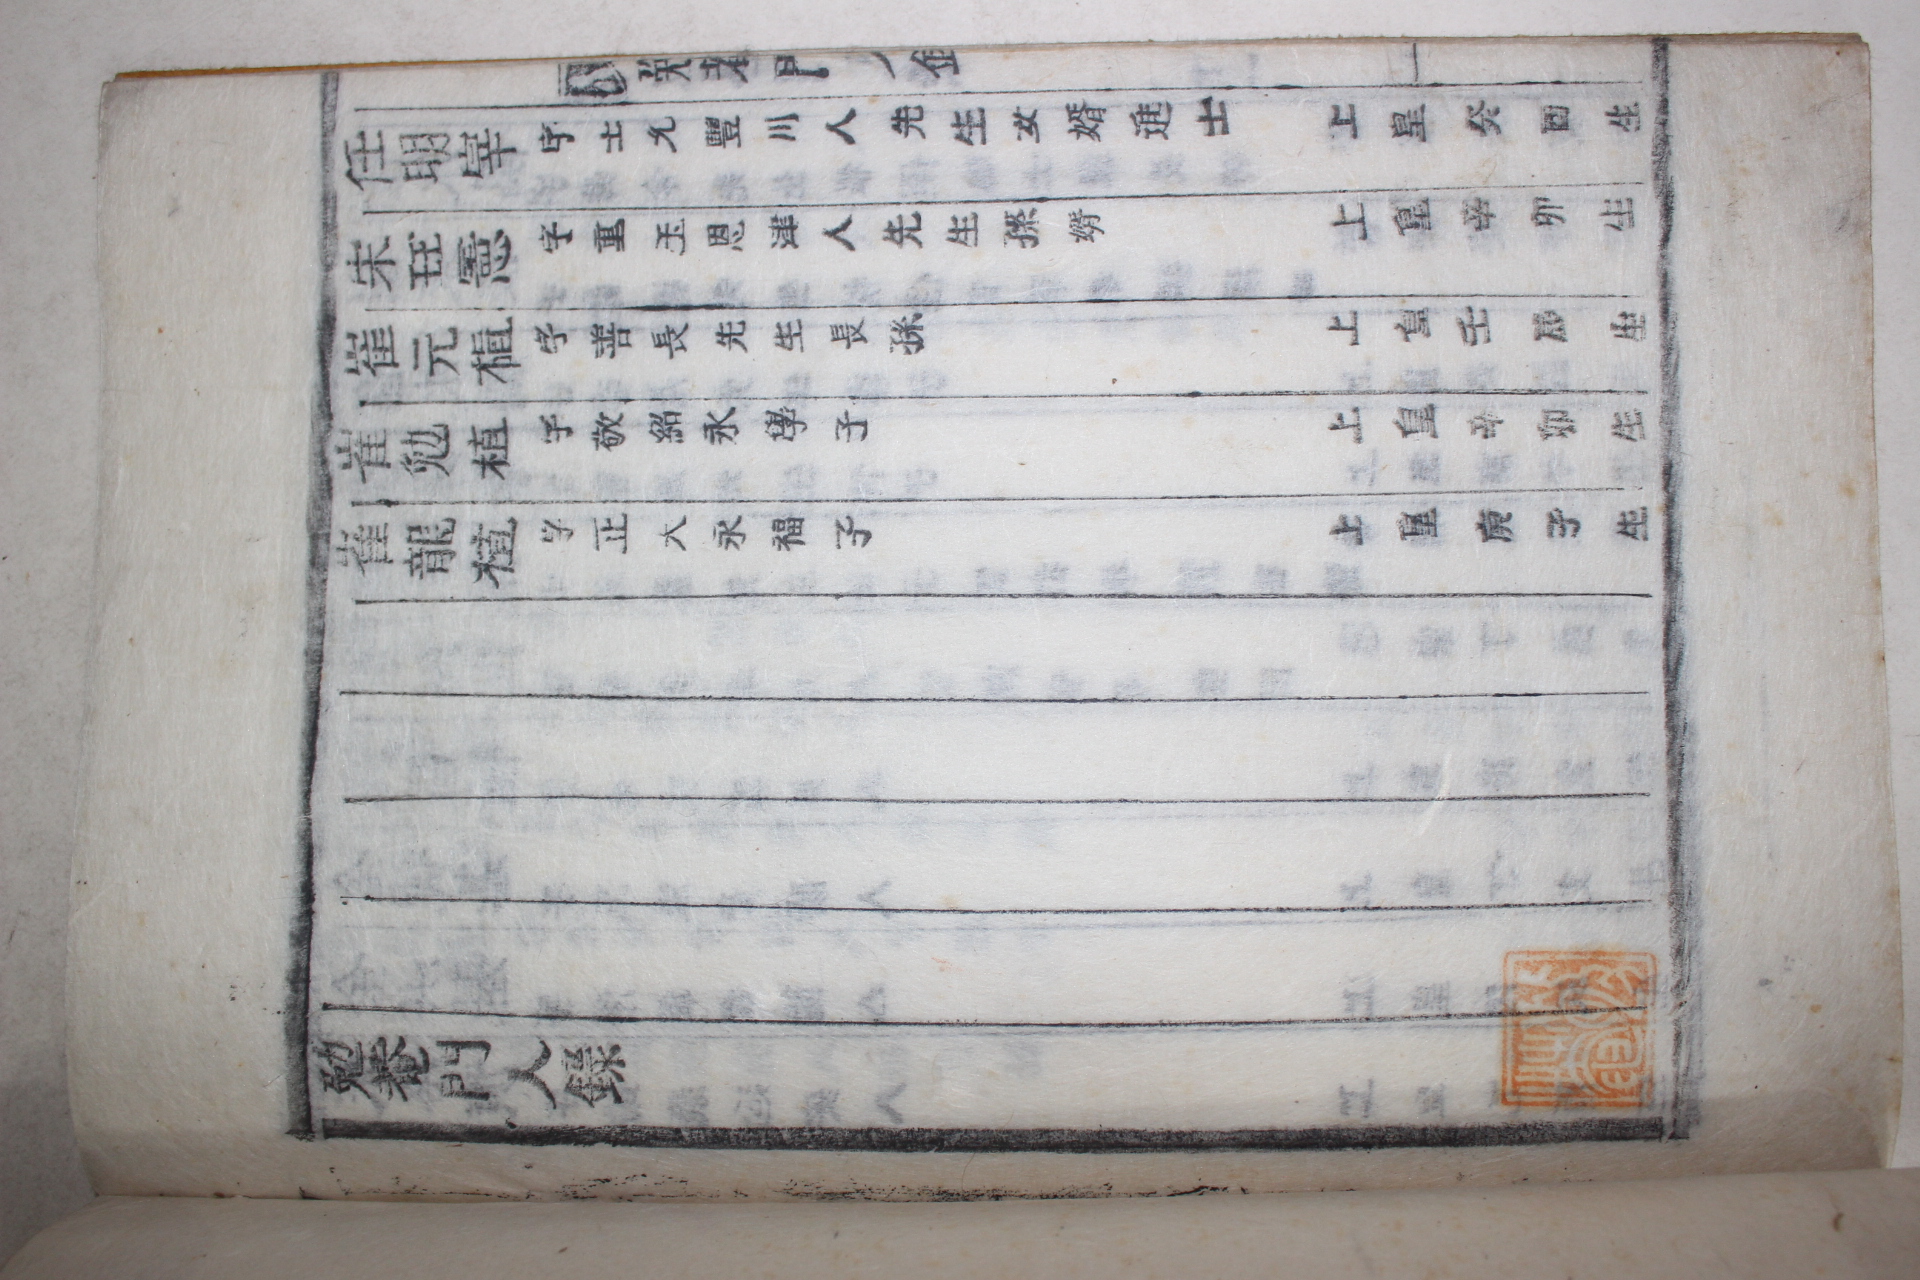 任明宰 字士允豐川人先生女婿進士 上皇癸酉生
宋珏憲 字重玉恩津人先生孫婿 上皇辛卯生
崔元植 字善長先生長孫 上皇壬辰生
崔勉植 字敬紹永學子 上皇辛卯生
崔龍植 字正大永福子 上皇庚子生
勉菴門人錄